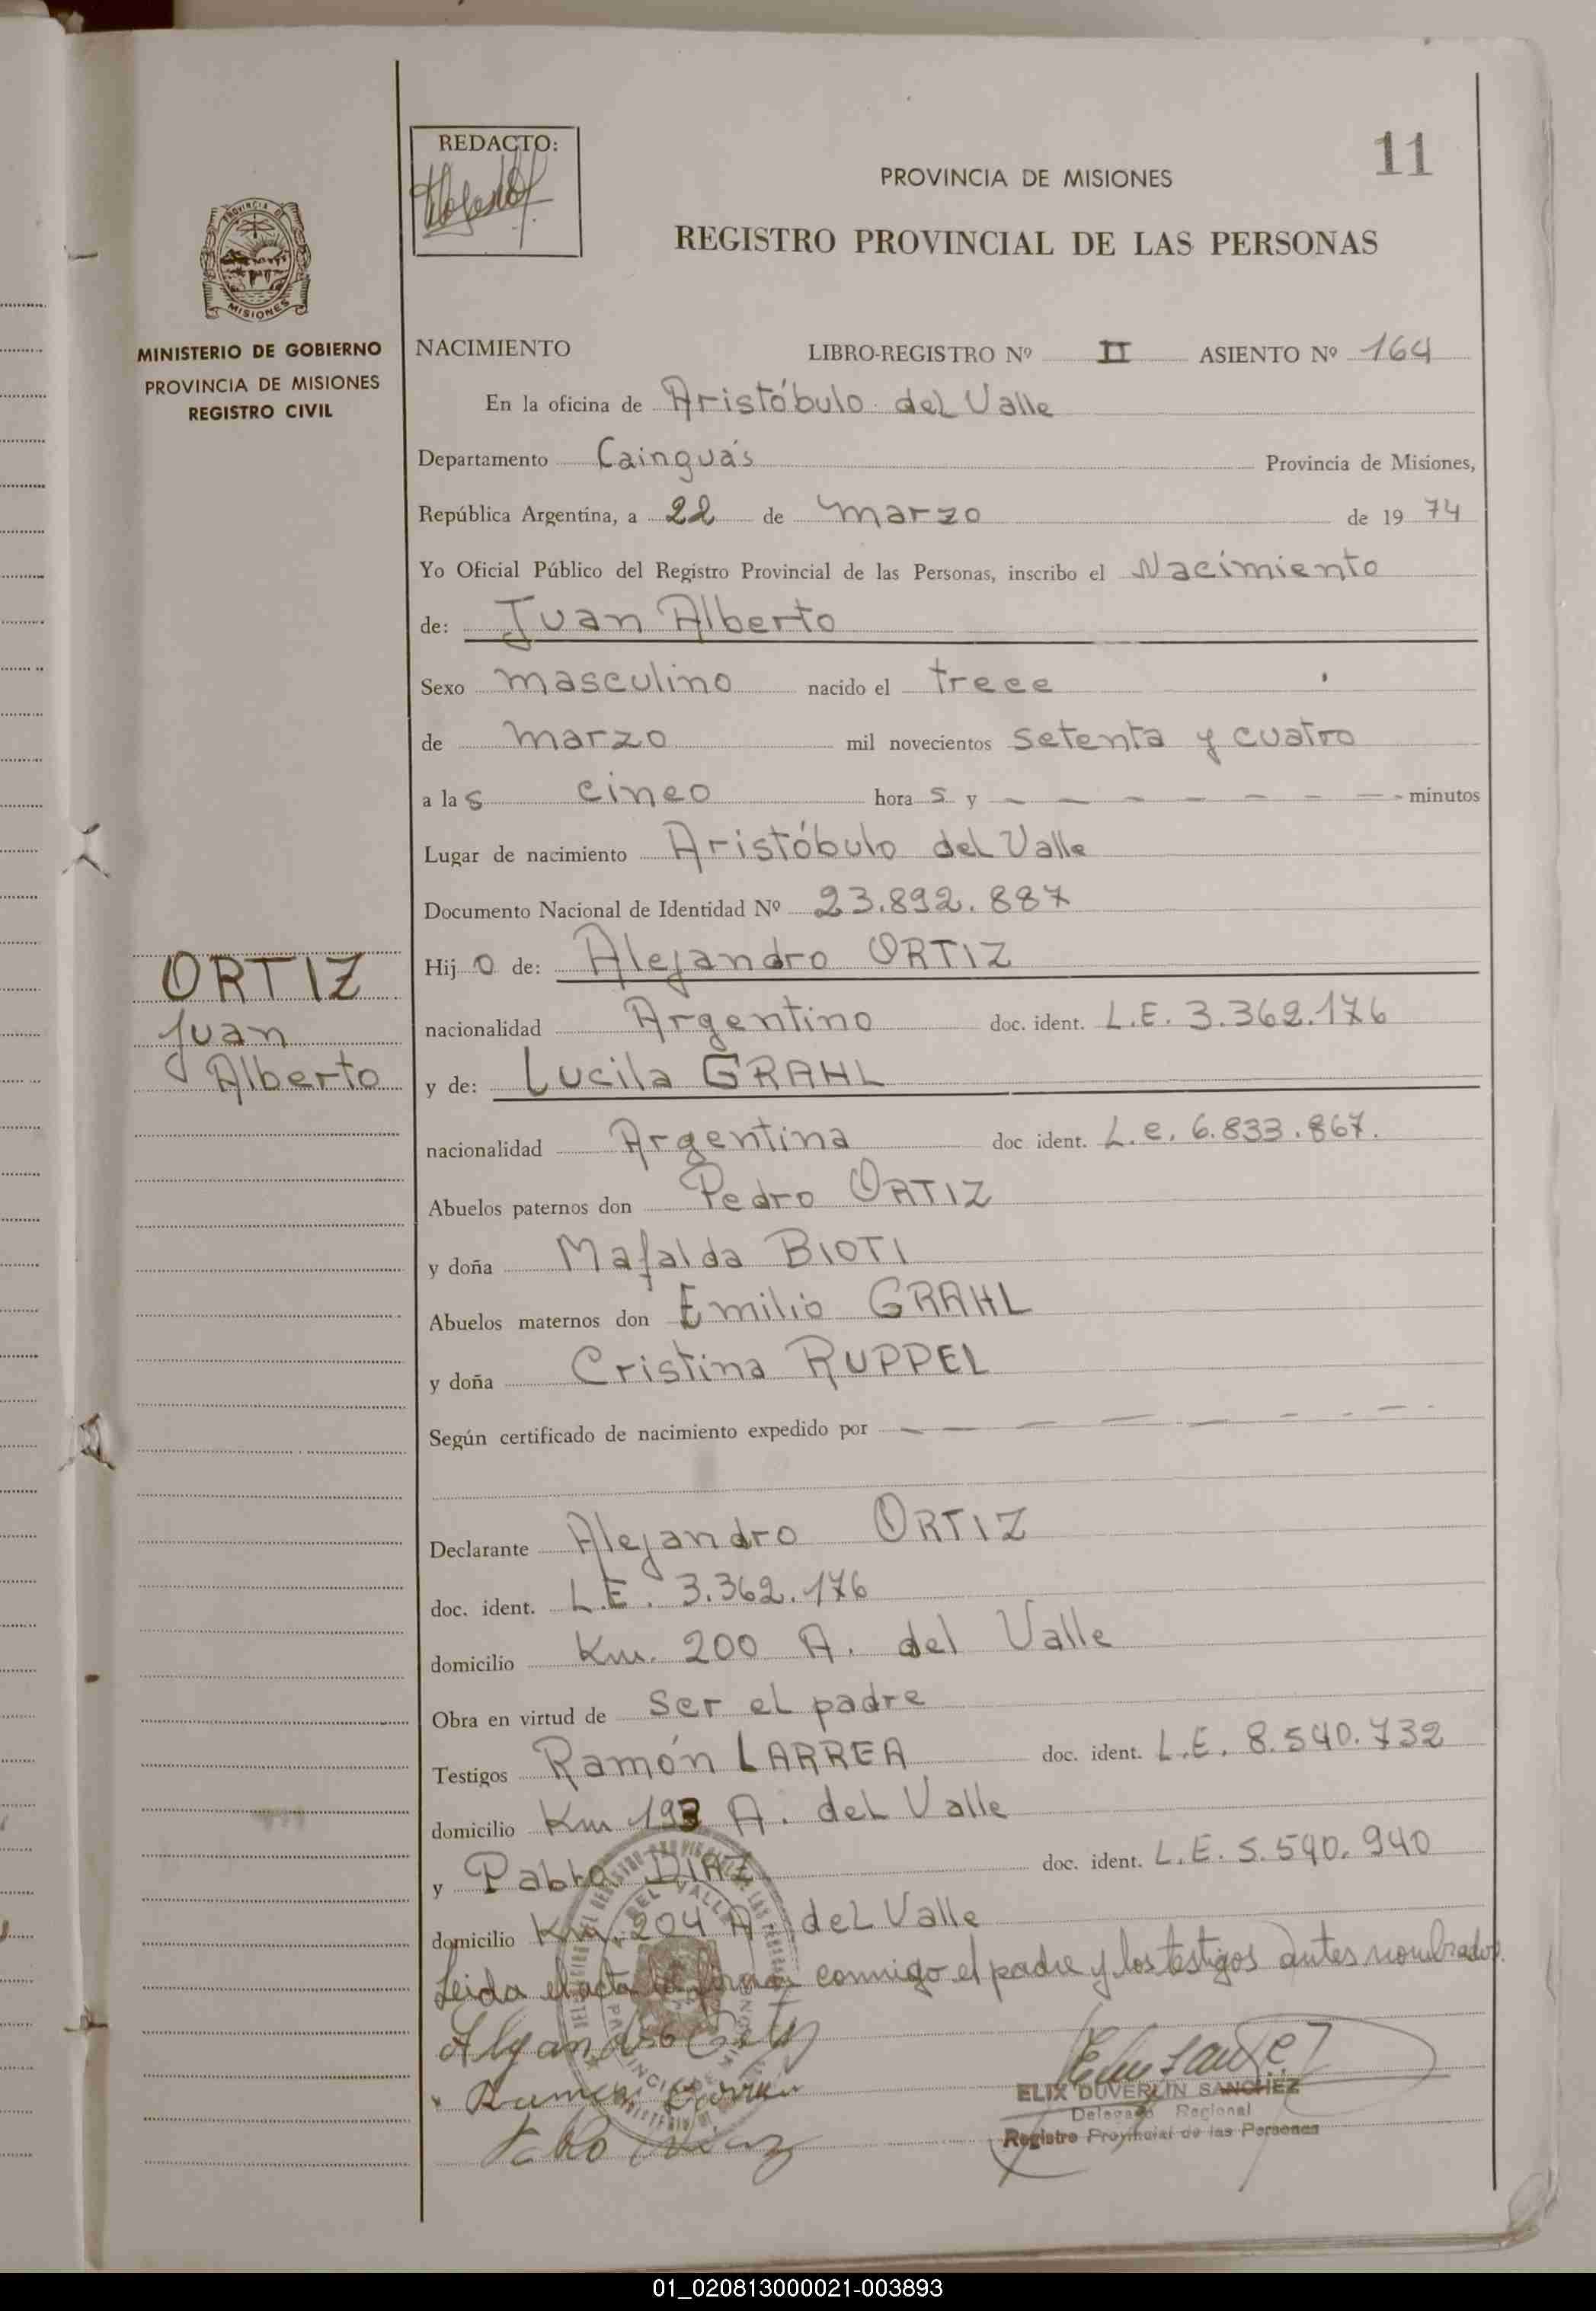 11
REDACTO:
PROVINCIA DE MISIONES
REGISTRO PROVINCIAL DE LAS PERSONAS
PROVINCIA DE
MISIONES
MINISTERIO DE GOBIERNO
PROVINCIA DE MISIONES
REGISTRO CIVIL
NACIMIENTO LIBRO-REGISTRO Nº II ASIENTO Nº 164
En la oficina de Aristóbulo del Valle
Departamento Cainguás Provincia de Misiones,
República Argentina, a 22 de marzo de 19 74
Yo Oficial Público del Registro Provincial de las Personas, inscribo el Nacimiento
de: Juan Alberto
Sexo masculino nacido el trece
de marzo mil novecientos setenta y cuatro
a las cinco horas y — — — — — — — minutos
Lugar de nacimiento Aristóbulo del Valle
Documento Nacional de Identidad Nº 23.892.887
ORTIZ
Juan
Alberto
Hijo de: Alejandro ORTIZ
nacionalidad Argentino doc. ident. L.E. 3.362.176
y de: Lucila GRAHL
nacionalidad Argentina doc ident. L.e. 6.833.867.
Abuelos paternos don Pedro ORTIZ
y doña Mafalda BIOTI
Abuelos maternos don Emilio GRAHL
y doña Cristina RUPPEL
Según certificado de nacimiento expedido por — — — — - - -
Declarante Alejandro ORTIZ
doc. ident. L.E. 3.362.176
domicilio Km. 200 A. del Valle
Obra en virtud de ser el padre
Testigos Ramón LARREA doc. ident. L.E. 8.540.732
domicilio Km 193 A. del Valle
y Pablo DIAZ doc. ident. L.E. 5.590.940
domicilio Km. 204 A. del Valle
Leida el acta la firman conmigo el padre y los testigos antes nombrados.
Alejandro Ortiz
Ramon Larrea
Pablo Diaz
ELIX DUVERLIN SANCHEZ
Delegado Regional
Registro Provincial de las Personas
01_020813000021-003893